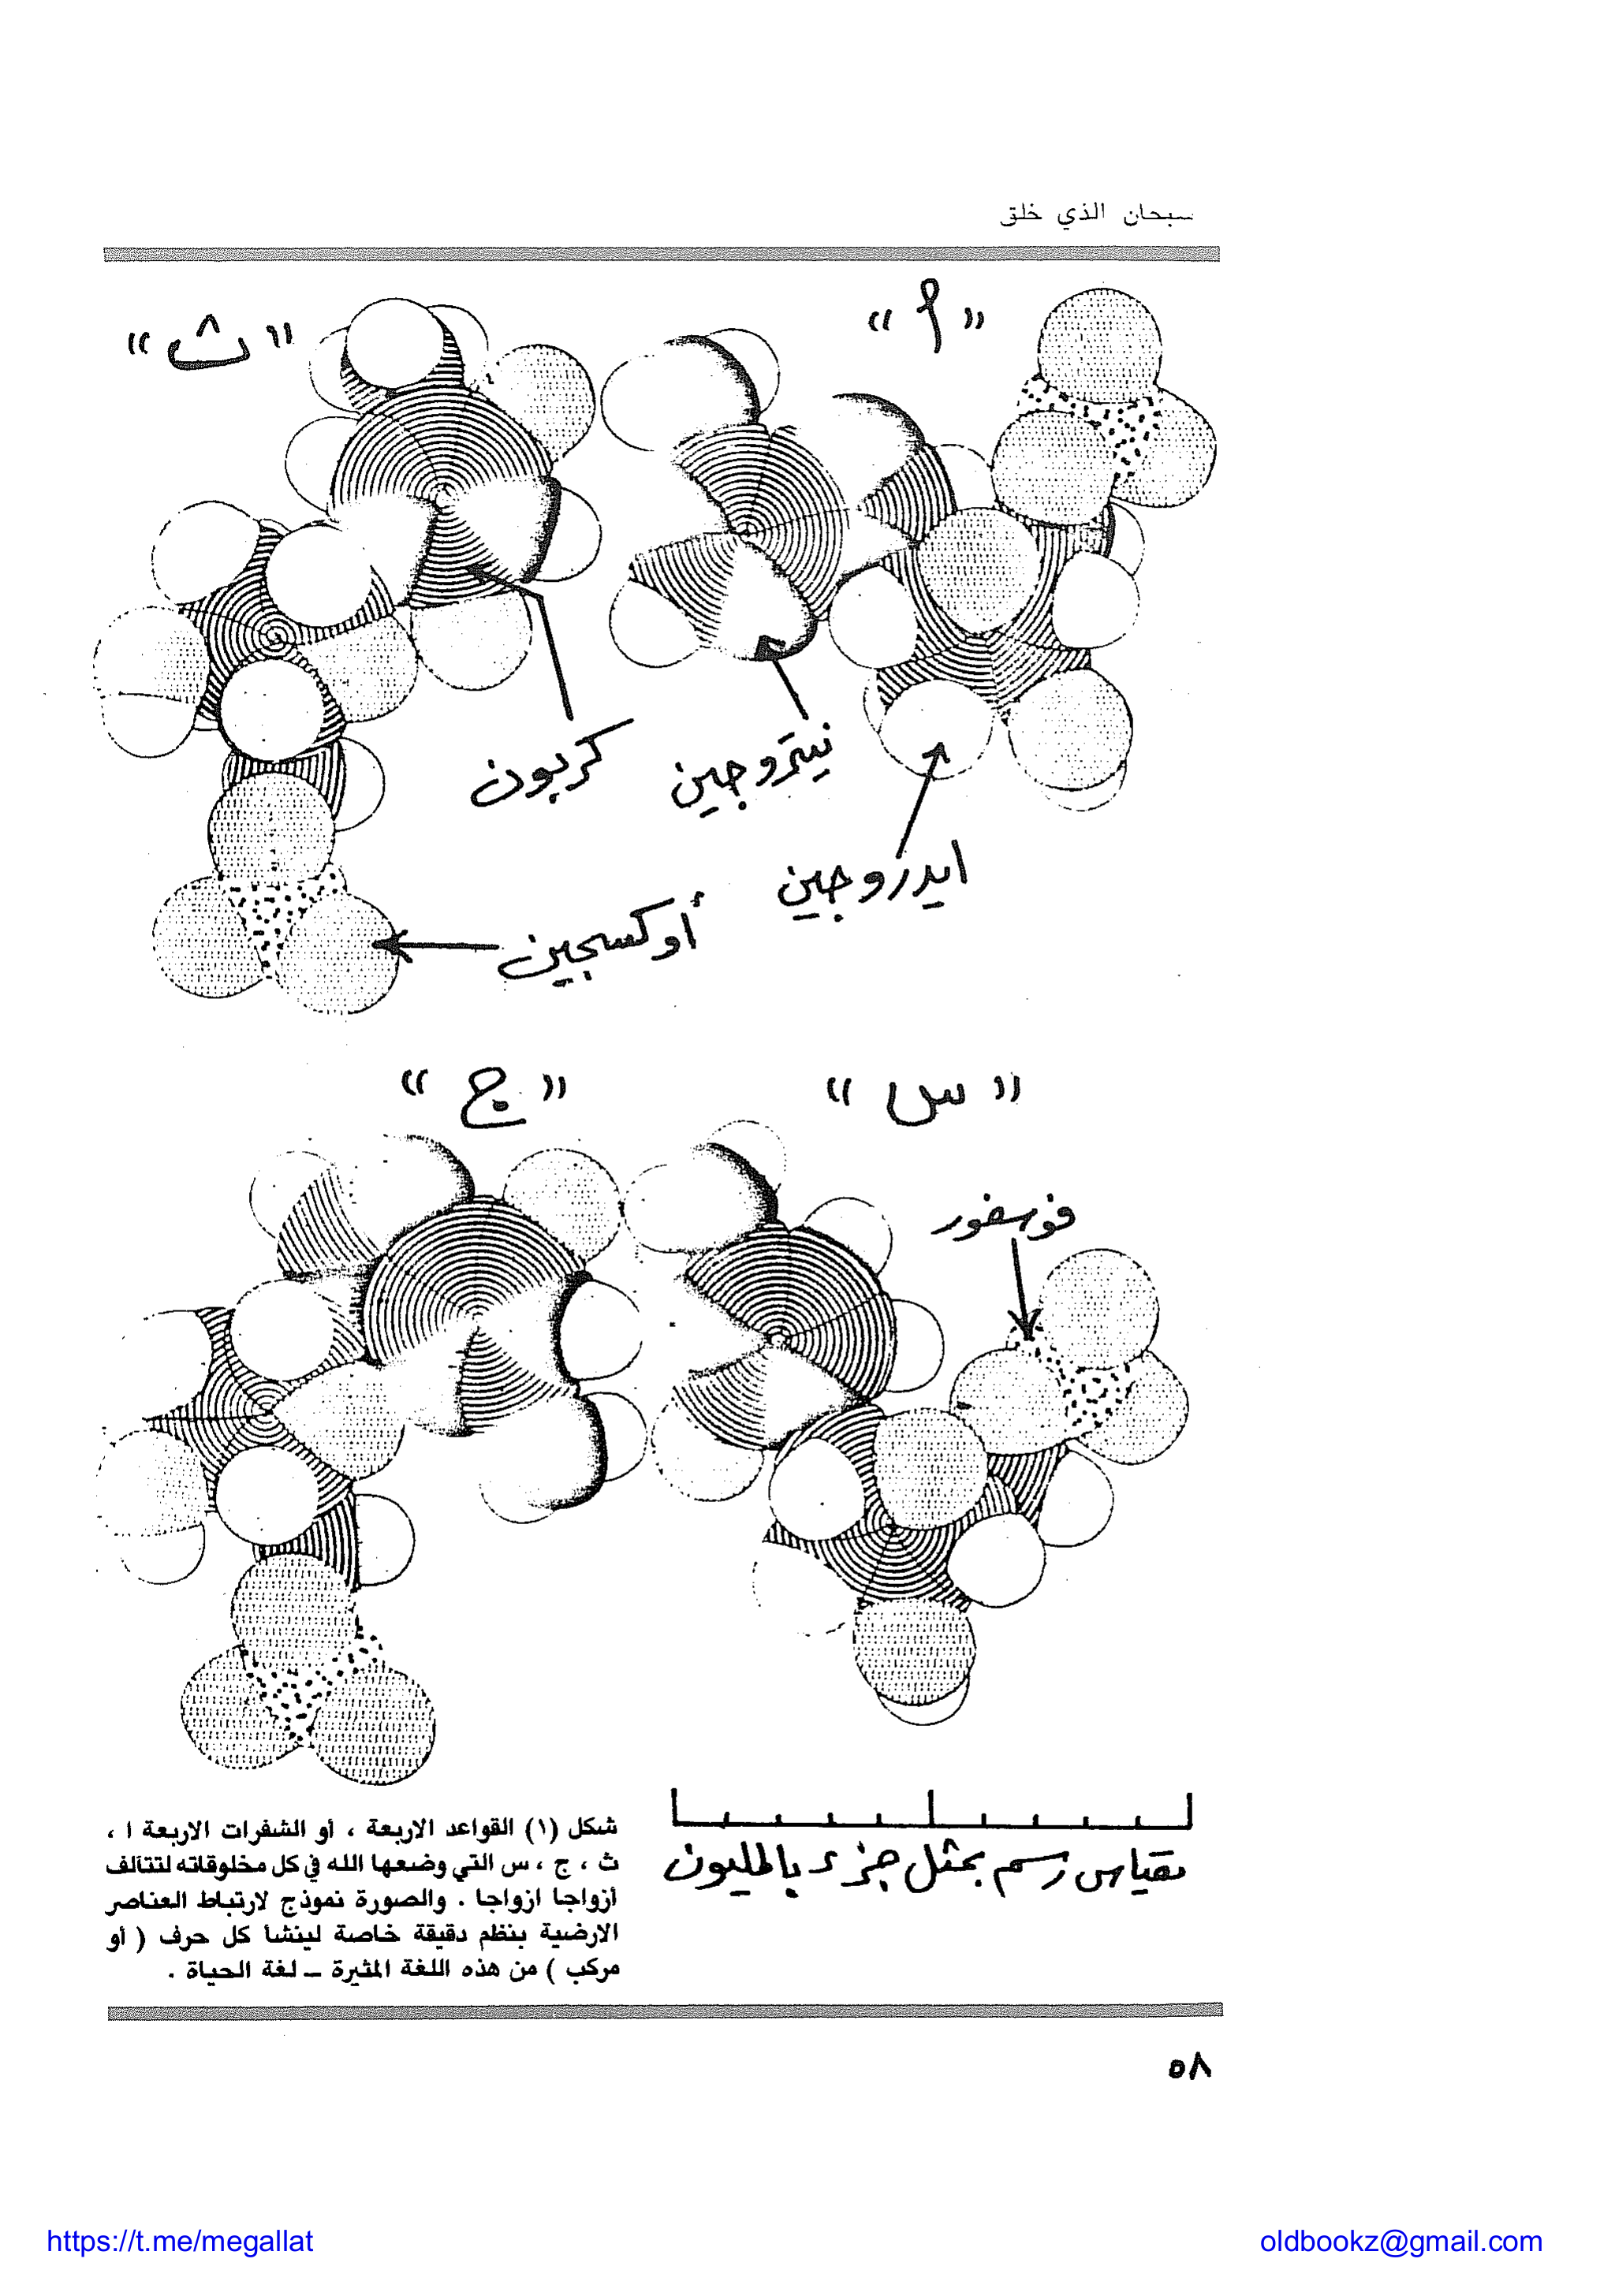 سبحان الذي خلق
« أ »
« ث »
كربون
نيتروجين
ايدروجين
أوكسجين
« ج »
« س »
فوسفور
مقياس رسم يمثل جزء بالمليون
شكل (١) القواعد الاربعة ، أو الشفرات الاربعة ا ،
ث ، ج ، س التي وضعها الله في كل مخلوقاته لتتالف
أزواجا ازواجا . والصورة نموذج لارتباط العناصر
الارضية بنظم دقيقة خاصة لينشأ كل حرف ( أو
مركب ) من هذه اللغة المثيرة – لغة الحياة .
٥٨
https://t.me/megallat
oldbookz@gmail.com